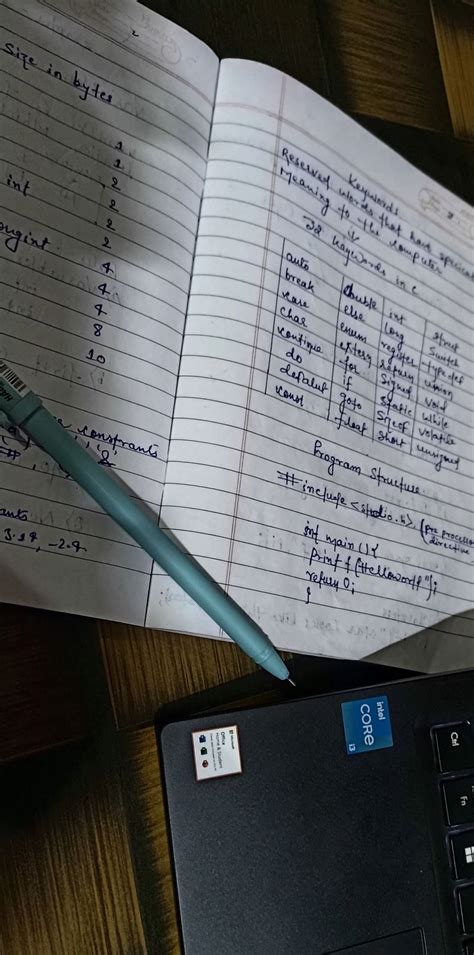 Size in bytes
1
1
2
2
int 2
2
4
4
4
8
10
constrants
3.14, -2.4
Keywords
Reserved words that have special
Meaning to the computer
32 keywords in c
auto double int struct
break else long switch
case enum register typedef
char extern return union
continue for signed void
do if static while
default goto sizeof volatile
const float short unsigned
Program Structure
#include <stdio.h> (pre processor
directive
int main(){
printf("Helloworld");
return 0;
}
intel
CORE
i3
Microsoft
Office
Home & Student
Ctrl
Fn